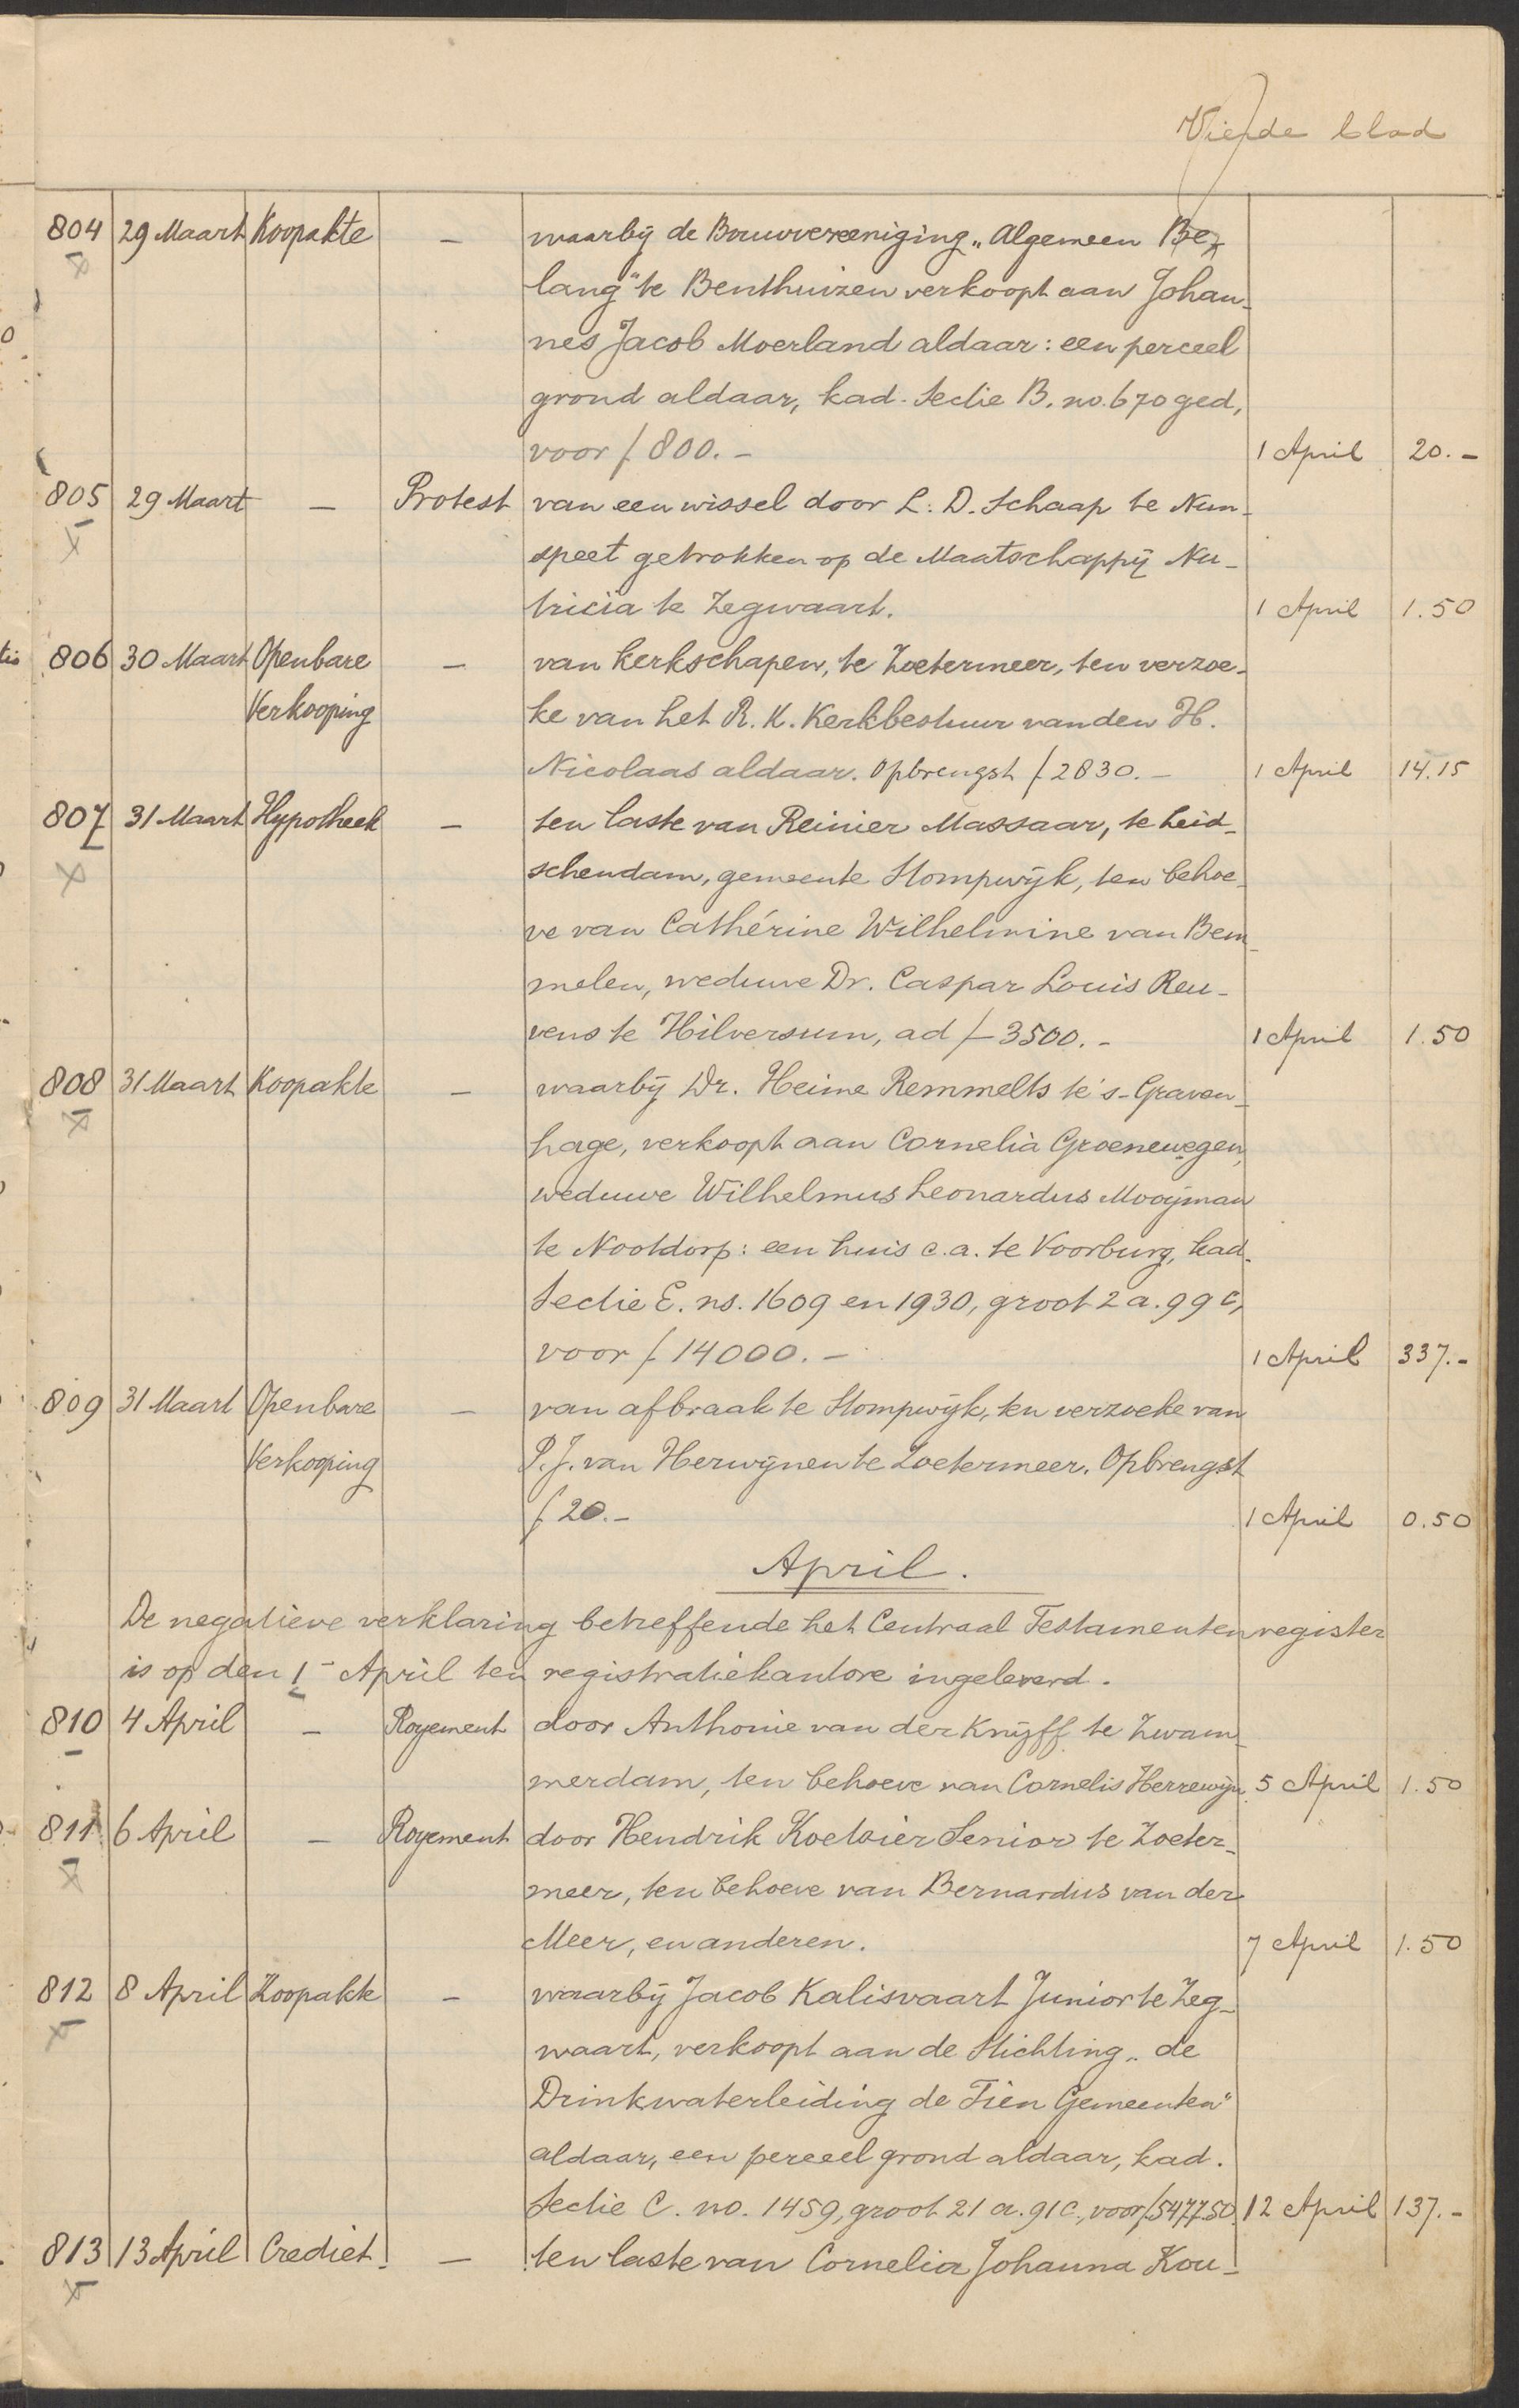 Vierde blad
804 29 Maart Koopakte — waarbij de Bouwvereeniging „Algemeen Be-
lang" te Benthuizen verkoopt aan Johan-
nes Jacob Moerland aldaar: een perceel
grond aldaar, kad. Sectie B. no. 670 ged,
voor ƒ 800.- 1 April 20.-
805 29 Maart — Protest van een wissel door L. D. Schaap te Nun-
speet getrokken op de Maatschappij Nu-
tricia te Zegwaart. 1 April 1.50
806 30 Maart Openbare — van kerkschapen, te Zoetermeer, ten verzoe-
Verkooping ke van het R. K. Kerkbestuur van den H.
Nicolaas aldaar. Opbrengst ƒ 2830.- 1 April 14.15
807 31 Maart Hypotheek — ten laste van Reinier Massaar, te Leid-
schendam, gemeente Stompwijk, ten behoe-
ve van Cathérine Wilhelmine van Bem-
melen, weduwe Dr. Caspar Louis Reu-
vens te Hilversum, ad ƒ 3500.- 1 April 1.50
808 31 Maart Koopakte — waarbij Dr. Heime Remmelts te 's-Graven-
hage, verkoopt aan Cornelia Groenewegen,
weduwe Wilhelmus Leonardus Mooijman
te Nootdorp: een huis c.a. te Voorburg, kad.
Sectie E. ns. 1609 en 1930, groot 2 a. 99 c,
voor ƒ 14000.- 1 April 337.-
809 31 Maart Openbare — van afbraak te Stompwijk, ten verzoeke van
Verkooping P. J. van Herwijnen te Zoetermeer. Opbrengst
ƒ 20.- 1 April 0.50
April.
De negatieve verklaring betreffende het Centraal Testamentenregister
is op den 1 April ten registratiekantore ingeleverd.
810 4 April — Royement door Anthonie van der Knijff te Zwam-
merdam, ten behoeve van Cornelis Herrewijn 5 April 1.50
811 6 April — Royement door Hendrik Koetsier Senior te Zoeter-
meer, ten behoeve van Bernardus van der
Meer, en anderen. 7 April 1.50
812 8 April Koopakte — waarbij Jacob Kalisvaart Junior te Zeg-
waart, verkoopt aan de Stichting „de
Drinkwaterleiding de Tien Gemeenten"
aldaar, een perceel grond aldaar, kad.
Sectie C. no. 1459, groot 21 a. 91 c., voor ƒ 5477.50. 12 April 137.-
813 13 April Crediet — ten laste van Cornelia Johanna Kou-